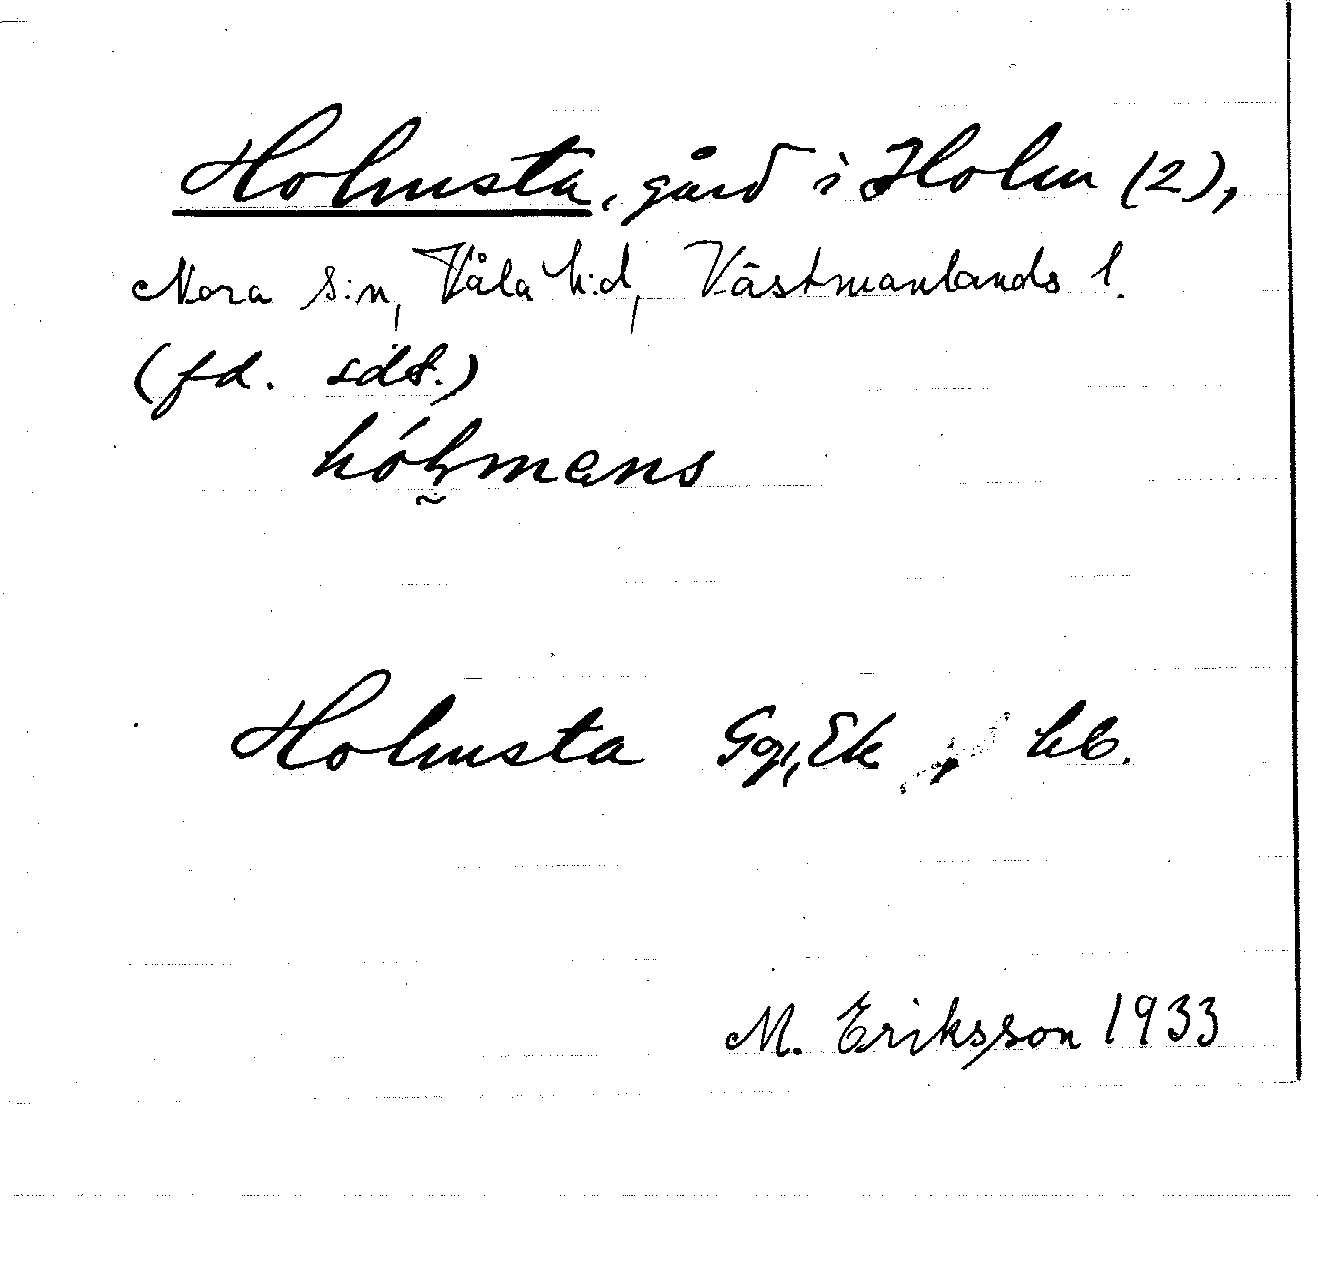 Holmsta, gård i Holm (2),
Nora s:n, Våla h:d, Västmanlands l.
(fd. sdst.)
hóļmans
Holmsta Gg, Ek, hb.
M. Eriksson 1933